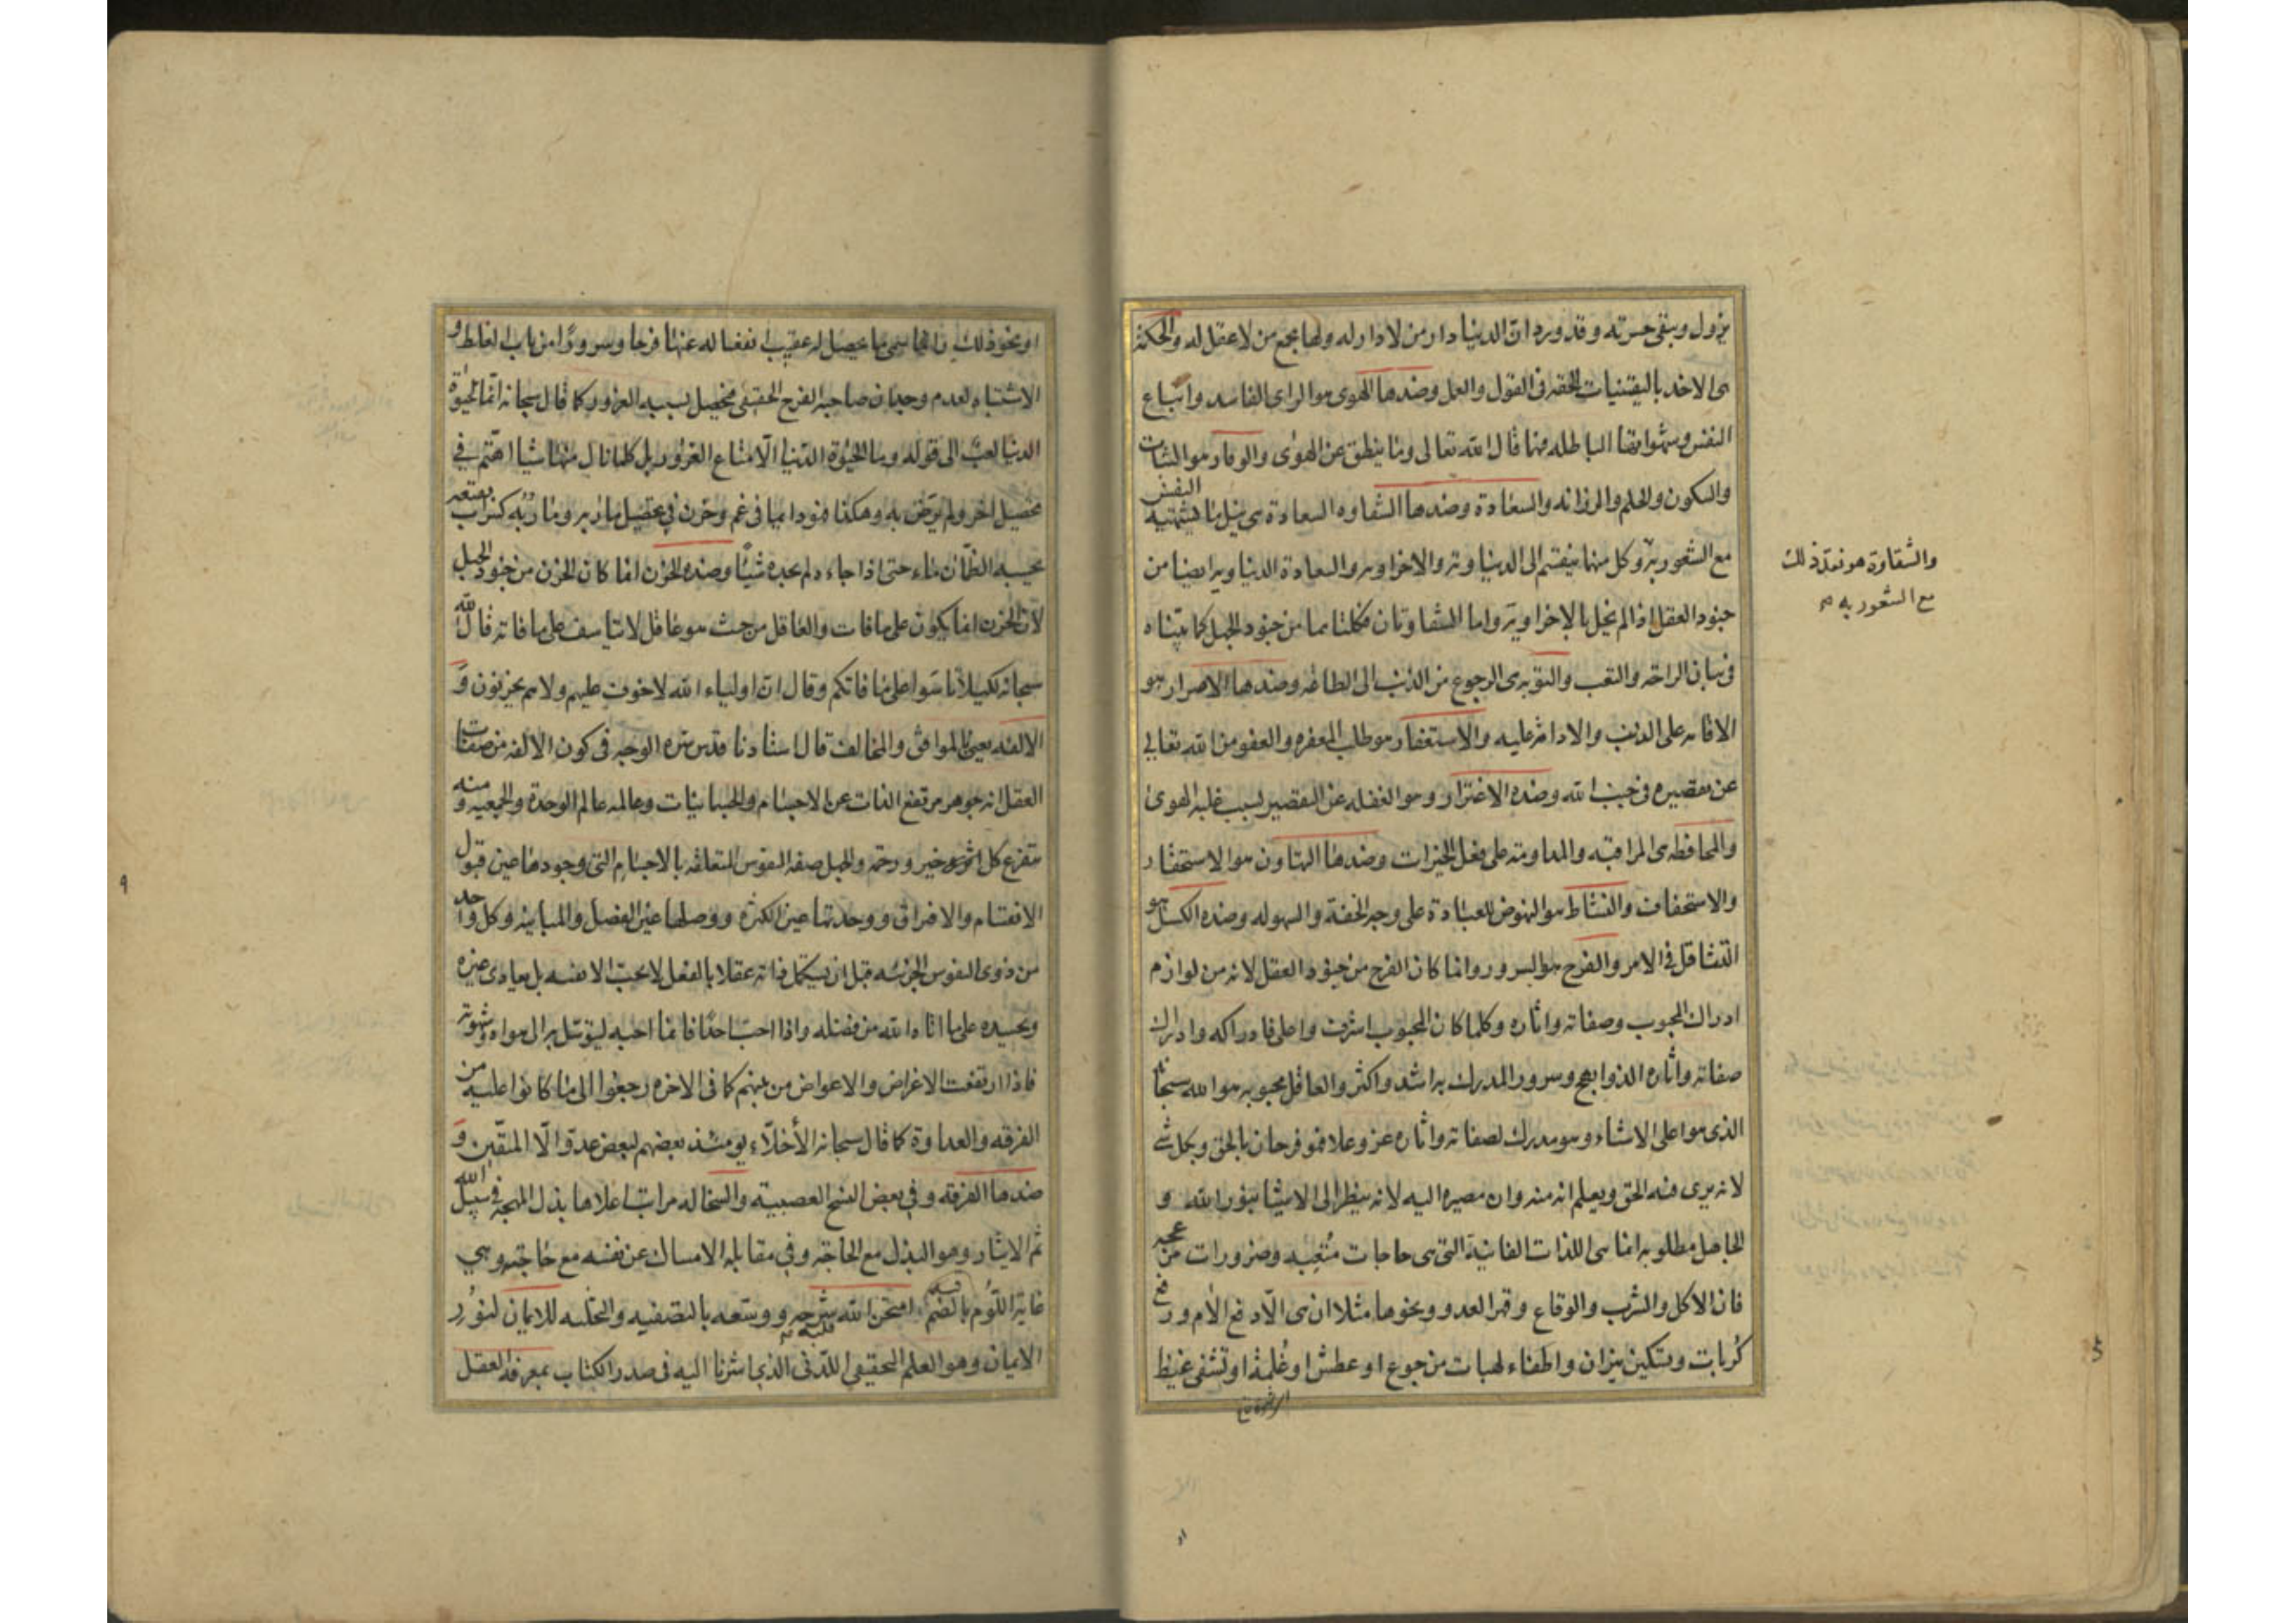 يزول ويبقى حسرته وقد ورد ان الدنيا دار من لا دار له ولها يجمع من لا عقل له والحكمة
هى الاخذ باليقينيات الحقه فى القول والعمل وضدها الهوى هو الراى الفاسد واتباع
النفس وشهواتها الباطله منها قال الله تعالى وما ينطق عن الهوى والوقار هو الثبات
والسكون والحلم والرزانه والسعادة وضدها الشقاوه السعادة هى نيل ما تشتهيه النفس
مع الشعور به وكل منهما ينقسم الى الدنياويه والاخراويه والسعادة الدنياويه ايضا من
جنود العقل اذا لم يخل بالاخراويه واما الشقاوتان فكلتاهما من جنود الجهل كما بيناه
فى بيان الراحة والتعب والتوبه هى الرجوع من الذنب الى الطاعه وضدها الاصرار هو
الاقامه على الذنب والادامة عليه والاستغفار هو طلب المغفره والعفو من الله تعالى
عن تقصيره فى جنب الله وضده الاغترار وهو الغفله عن التقصير بسبب غلبه الهوى
والمحافظه هى المراقبه والمداومه على فعل الخيرات وضدها التهاون هو الاستحقار
والاستخفاف والنشاط هو النهوض للعبادة على وجه الخفة والسهوله وضده الكسل هو
التثاقل فى الامر والفرح هو السرور وانما كان الفرح من جنود العقل لانه من لوازم
ادراك المحبوب وصفاته واثاره وكلما كان المحبوب اشرف واعلى فادراكه وادراك
صفاته واثاره الذ وابهج وسرور المدرك به اشد واكثر والعاقل محبوبه هو الله سبحانه
الذى هو اعلى الاشياء وهو مدرك لصفاته واثاره عز وعلا فهو فرحان بالحق وبكل شئ
لانه يرى فيه الحق ويعلم انه منه وان مصيره اليه لانه ينظر الى الاشيا بنور الله و
الجاهل مطلوبه انما هى اللذات الفانية التى هى حاجات مُتعبه وضرورات
فان الاكل والشرب والوقاع وقهر العدو ونحوها مثلا ان هى الّا دفع الام ورفع
كُربات وتسكين نيران واطفاء لهبات من جوع او عطش او غُلمة او تشفى غيظ
والشقاوة هو فقد ذلك
مع الشعور به صح
او نحو ذلك وانما سمى ما يحصل له عقيب انفعاله عنها فرحا وسرورًا من باب الغلط و
الاشتباه لعدم وجدان صاحبه الفرح الحقيقى فيحصل بسببه الغرور كما قال سبحانه انّما الحيوٰة
الدنيا لعبٌ الى قوله وما الحيٰوة الدّنيا الّا متاع الغرور بل كلما نال منها شيا اهتم فى
تحصيل اخر ولم يرض به وهكذا فهو دايما فى غم وحزن فى تحصيل مآربه ومآربه كسراب بقيعة
يحسبه الظّمآن ماء حتى اذا جاءه لم يجده شيئًا وضده الحزن انما كان الحزن من جنود الجهل
لان الحزن انما يكون على ما فات والعاقل من حيث هو عاقل لا يتاسف على ما فاته قال الله
سبحانه لكيلا تأسَوا على ما فاتكم وقال انّ اولياء الله لا خوف عليهم ولا هم يحزنون وَ
الالفه يعنى بالموافق والمخالف قال استادنا قدس سره الوجه فى كون الالفه من صفات
العقل انه جوهر مرتفع الذات عن الاجسام والجسمانيات وعالمه عالم الوحدة والجمعيه ومنه
يتفرع كل خير ورحمة والجهل صفه النفوس المتعلقه بالاجسام التى وجودها عين قبول
الانقسام والافتراق ووحدتها عين الكثره ووصلها عين الفصل والمباينه وكل واحد
من ذوى النفوس الجزئيه قبل ان يستكمل ذاته عقلا بالفعل لا يحبّ الا نفسه بل يعادى غيره
ويحسده على ما اتاه الله من فضله واذا احبّ احدًا فانما احبه ليتوسل به الى هواه وشهوته
فاذا ارتفعت الاغراض والاعواض من بينهم كما فى الاخره رجعوا الى ما كانوا عليه من
الفرقه والعداوة كما قال سبحانه الأخلّاء يومئذ بعضهم لبعض عدوّ الّا المتقين وَ
ضدها الفرقه وفى بعض النسخ العصبية والسخا له مراتب اعلاها بذل المهجة فى سبيل الله
ثم الايثار وهو البذل مع الحاجة وفى مقابله الامساك عن نفسه مع حاجته وهى
غاية اللّوم بالضم امتحن الله قلبه شرحه ووسّعه بالتصفيه والتخليه للايمان لنُور
الايمان وهو العلم الحقيقى اللّدنّى الذى اشرنا اليه فى صدر الكتاب بمعرفة العقل
٩